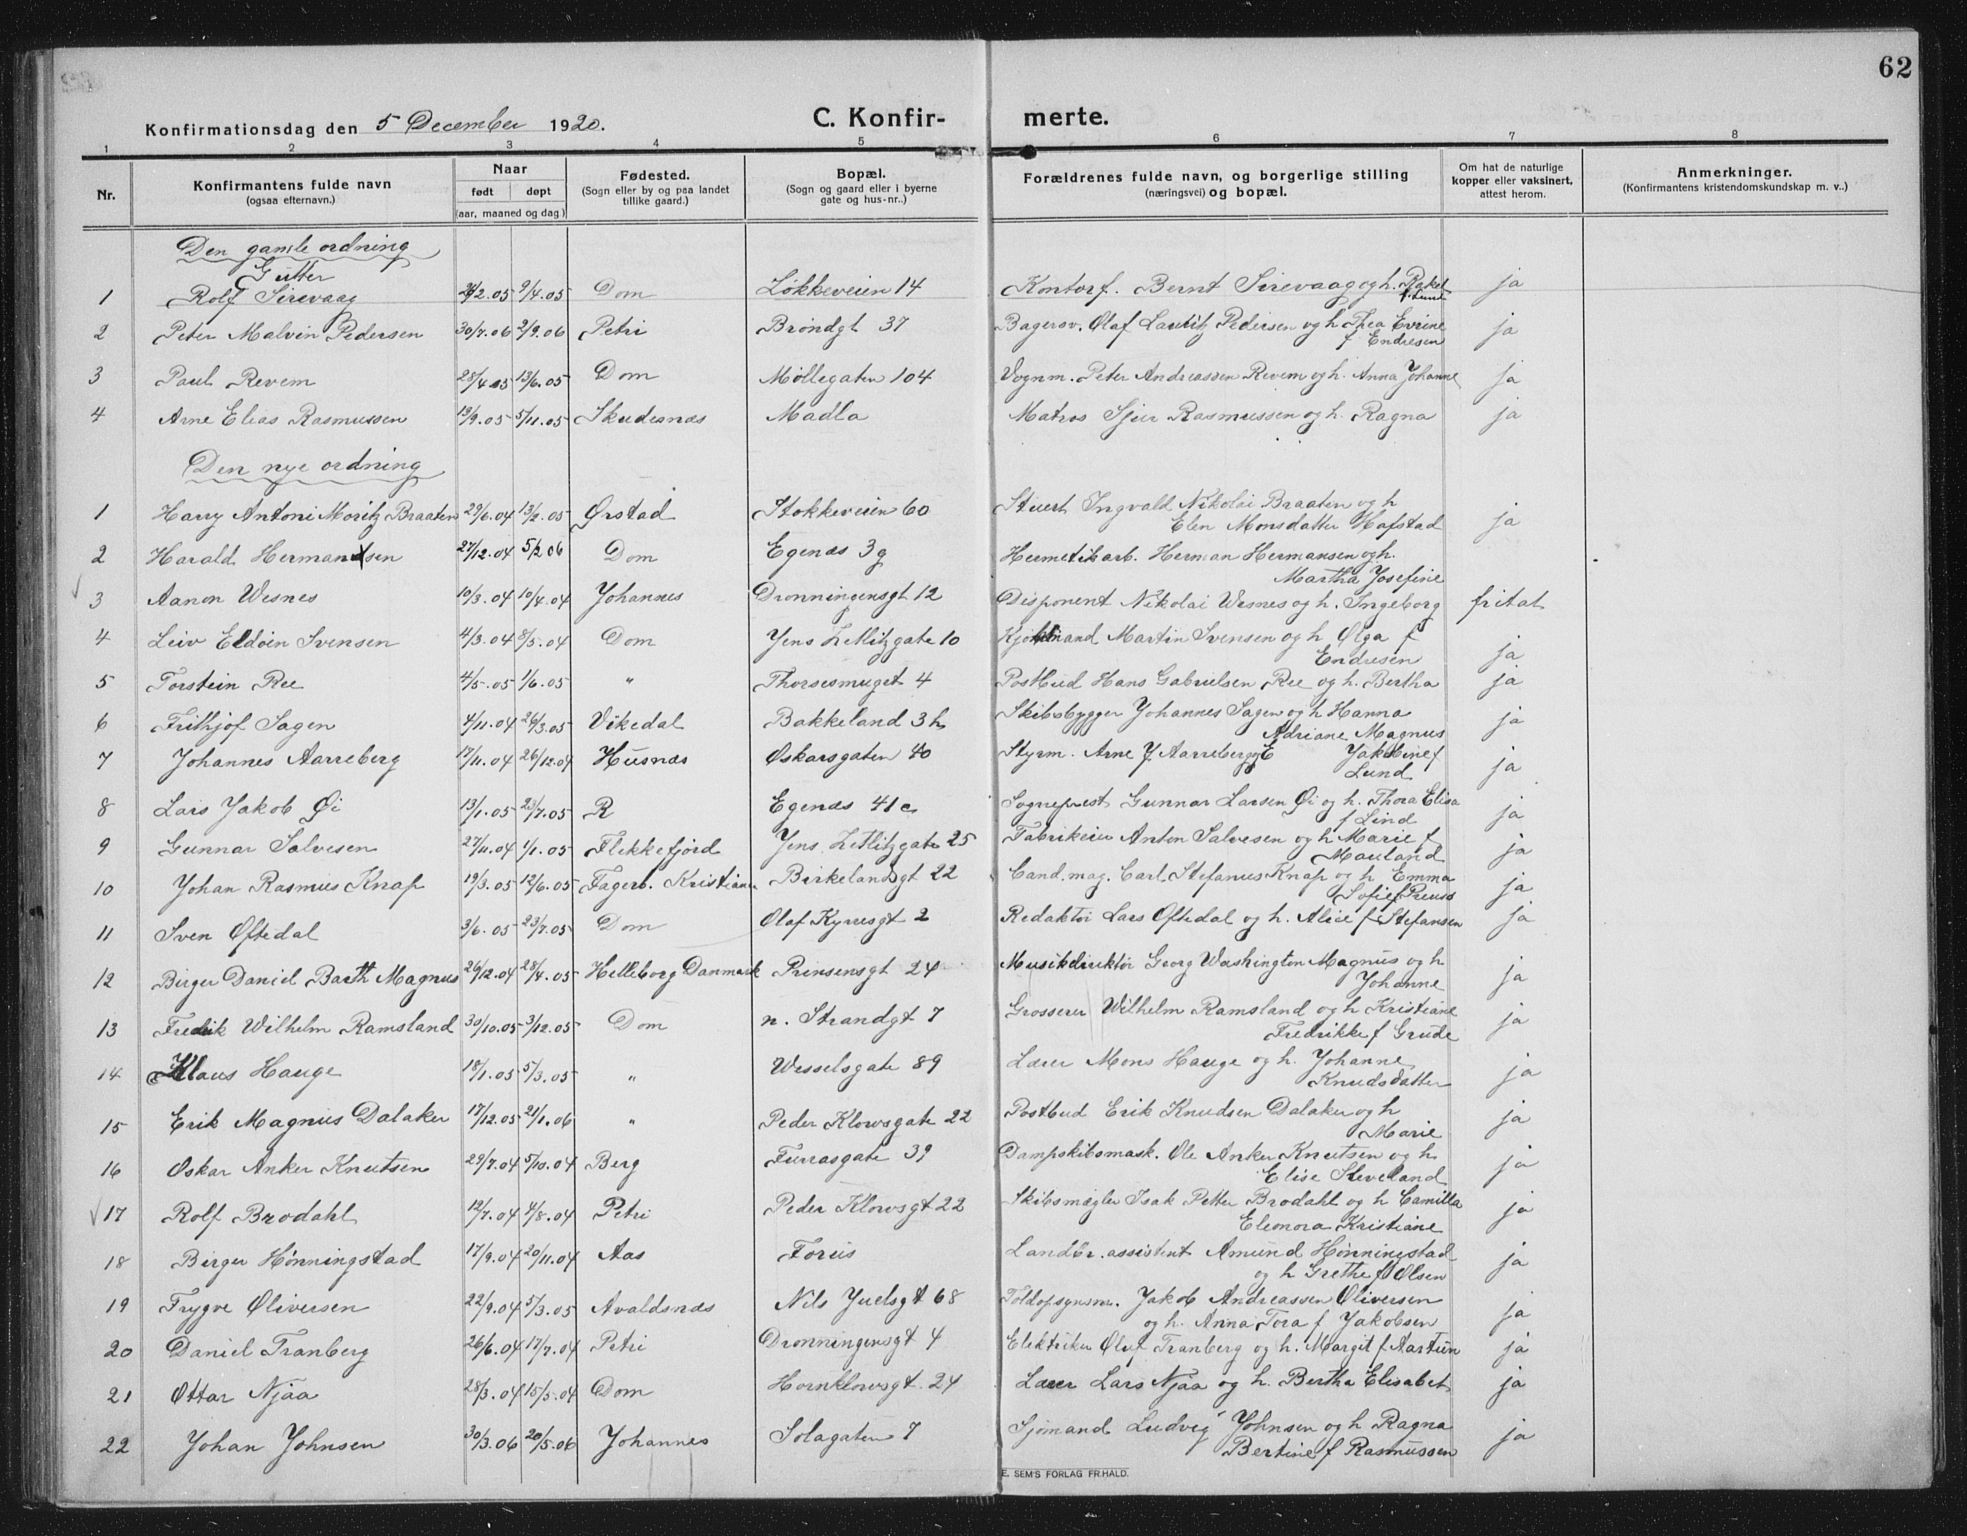 62
Konfirmationsdag den 5 December 1920. C. Konfirmerte.
1 2 3 4 5 6 7 8
Nr. Konfirmantens fulde navn (ogsaa efternavn.) Naar født døpt (aar, maaned og dag) Fødested. (Sogn eller by og paa landet tillike gaard.) Bopæl. (Sogn og gaard eller i byerne gate og hus-nr.) Forældrenes fulde navn, og borgerlige stilling (næringsvei) og bopæl. Om hat de naturlige kopper eller vaksinert, attest herom. Anmerkninger. (Konfirmantens kristendomskundskap m. v..)
Den gamle ordning
Gutter
1 Rolf Sirevaag 26/2.05 9/4.05 Dom Løkkeveien 14 Kontorf. Bernt Sirevaag og h. Rakel f. Lund ja
2 Peter Malvin Pedersen 30/7.06 2/9.06 Petri Brøndgt 37 Bagersv. Olaf Lauritz Pedersen og h Thea Evrine f Endresen ja
3 Paul Revem 28/4.05 13/6.05 Dom Møllegaten 104 Vognm. Peter Andreassen Revem og h. Anna Johanne ja
4 Arne Elias Rasmussen 13/9.05 5/11.05 Skudesnæs Madla Matros Sjur Rasmussen og h. Ragna ja
Den nye ordning
1 Harry Antoni Moritz Braaten 29/6.04 13/2.05 Ørstad Stokkeveien 60 Stuert Ingvald Nikolai Braaten og h Elen Monsdatter Hafstad ja
2 Harald Hermansen 27/12.04 5/2 06 Dom Egenæs 3g Hermetikarb. Herman Hermansen og h. Martha Josefine
3 Aanon Wesnes 10/3.04 10/4.04 Johannes Dronningensgt 12 Disponent Nikolai Wesnes og h. Ingeborg fritat
4 Leiv Eldøin Svensen 4/3.04 8/5.04 Dom Jens Zetlitzgate 10 Martin Svensen og h Olga f Endresen ja
5 Torstein Ree 4/5.05 1/6.05 " Thorsesmuget 4 Postbud Hans Gabrielsen Ree og h. Bertha ja
6 Frithjof Sagen 4/11.04 26/3.05 Vikedal Bakkeland 3h Skibsbygger Johannes Sagen og h Hanna Adriane Magnus ja
7 Johannes Aarreberg 17/11.04 26/12.04 Husnæs Oskarsgaten 40 Styrm. Arne J Aarreberg og E Jakobine f Lund ja
8 Lars Jakob Øi 13/1.05 23/7.05 R Egenæs 41c Sogneprest Gunnar Larsen Øi og h. Thora Elisa f Lind ja
9 Gunnar Salvesen 27/11.04 1/1.05 Flekkefjord Jens Zetlitzgate 25 Fabrikeier Anton Salvesen og h Marie f Mauland ja
10 Johan Rasmus Knap 19/3.05 12/6.05 Fagerb. Kristiania Birkelandsgt 22 Cand. mag. Carl Stefanus Knap og h Emma Sofie f Preuss ja
11 Sven Oftedal 3/6.05 23/7.05 Dom Olaf Kyrresgt 2 Redaktør Lars Oftedal og h. Alice f Stefansen ja
12 Birger Daniel Barth Magnus 26/12.04 28/4.05 Helleborg Danmark Prinsensgt 24 Musikdirektør Georg Washington Magnus og h Johanne ja
13 Fredrik Wilhelm Ramsland 30/10.05 3/12.05 Dom n. Strandgt 7 Grosserer Wilhelm Ramsland og h Kristiane Fredrikke f Grude ja
14 Klaus Hauge 18/1.05 5/3.05 " Wesselsgate 89 Lærer Mons Hauge og h. Johanne Knudsdatter ja
15 Erik Magnus Dalaker 17/12.05 21/1.06 " Peder Klowsgate 22 Postbud Erik Knudsen Dalaker og h Marie ja
16 Oskar Anker Knutsen 29/7.04 5/10.04 Berg Furrasgate 39 Dampskibsmask. Ole Anker Knutsen og h. Elise Steveland ja
17 Rolf Brodahl 12/7.04 4/8.04 Petri Peder Klowsgt 22 Skibsmægler Isak Petter Brodahl og h Camilla Eleonora Kristiane ja
18 Birger Hønningstad 17/9.04 20/11.04 Aas Forus Landbr. assistent Amund Hønningstad og h Grethe f Olsen ja
19 Trygve Oliversen 22/9.04 5/3.05 Avaldsnæs Nils Juelsgt 68 Toldopsynsm. Jakob Andreassen Oliversen og h. Anna Tora f Jakobsen ja
20 Daniel Tranberg 26/6.04 17/7.04 Petri Dronningensgt 4 Elektriker Oluf Tranberg og h. Margit f Aartun ja
21 Ottar Njaa 28/3.04 15/5.04 Dom Hornklowsgt. 24 Lærer Lars Njaa og h. Bertha Elisabet ja
22 Johan Johnsen 30/3.06 20/5.06 Johannes Solagaten 7 Sjømand Ludvig Johnsen og h Ragna Bertine f Rasmussen ja
E. SEM'S FORLAG FR.HALD.